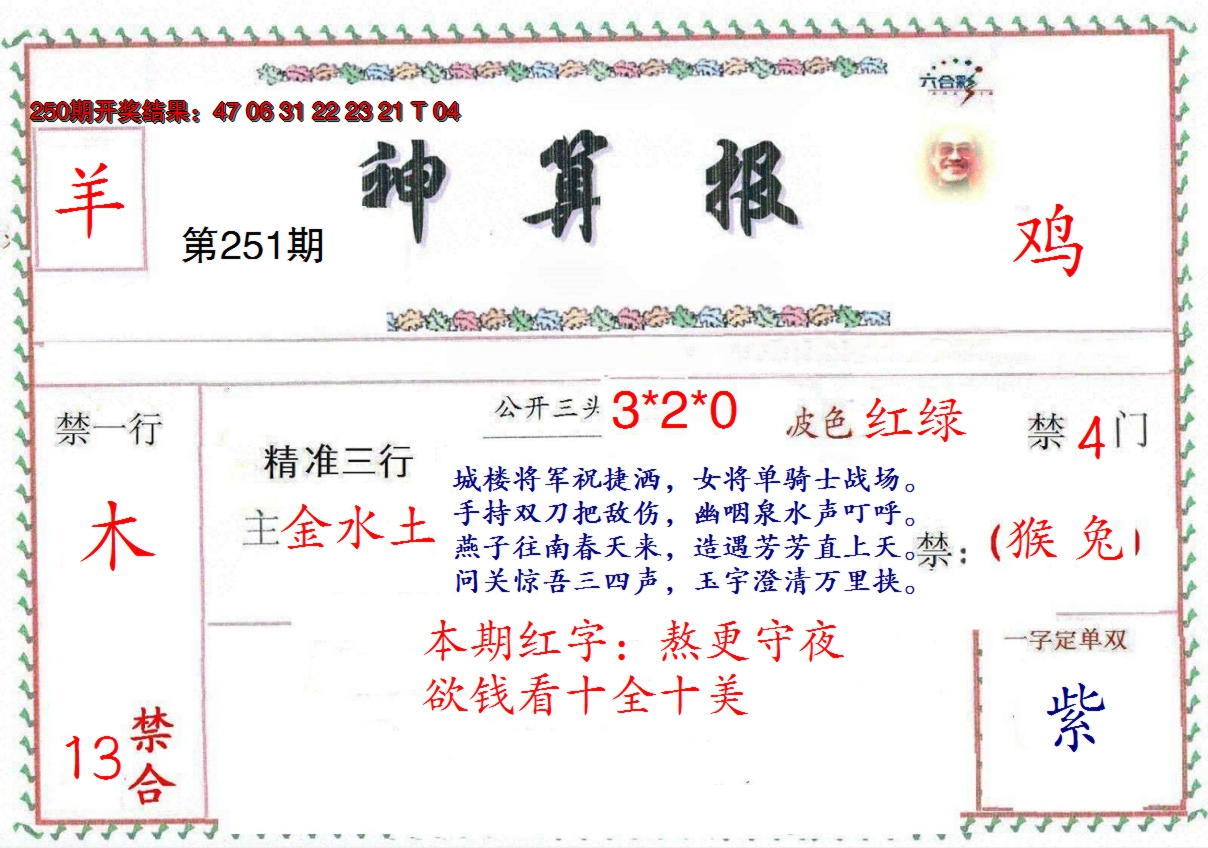 六合彩
250期开奖结果：47 06 31 22 23 21 T 04
羊
神算报
第251期
鸡
禁一行
木
13 禁合
精准三行
主金水土
公开三头 3*2*0
波色 红绿
禁 4 门
城楼将军祝捷洒，女将单骑士战场。
手持双刀把敌伤，幽咽泉水声叮呼。
燕子往南春天来，造遇芳芳直上天。
问关惊吾三四声，玉宇澄清万里挟。
禁：（猴 兔）
本期红字：熬更守夜
欲钱看十全十美
一字定单双
紫